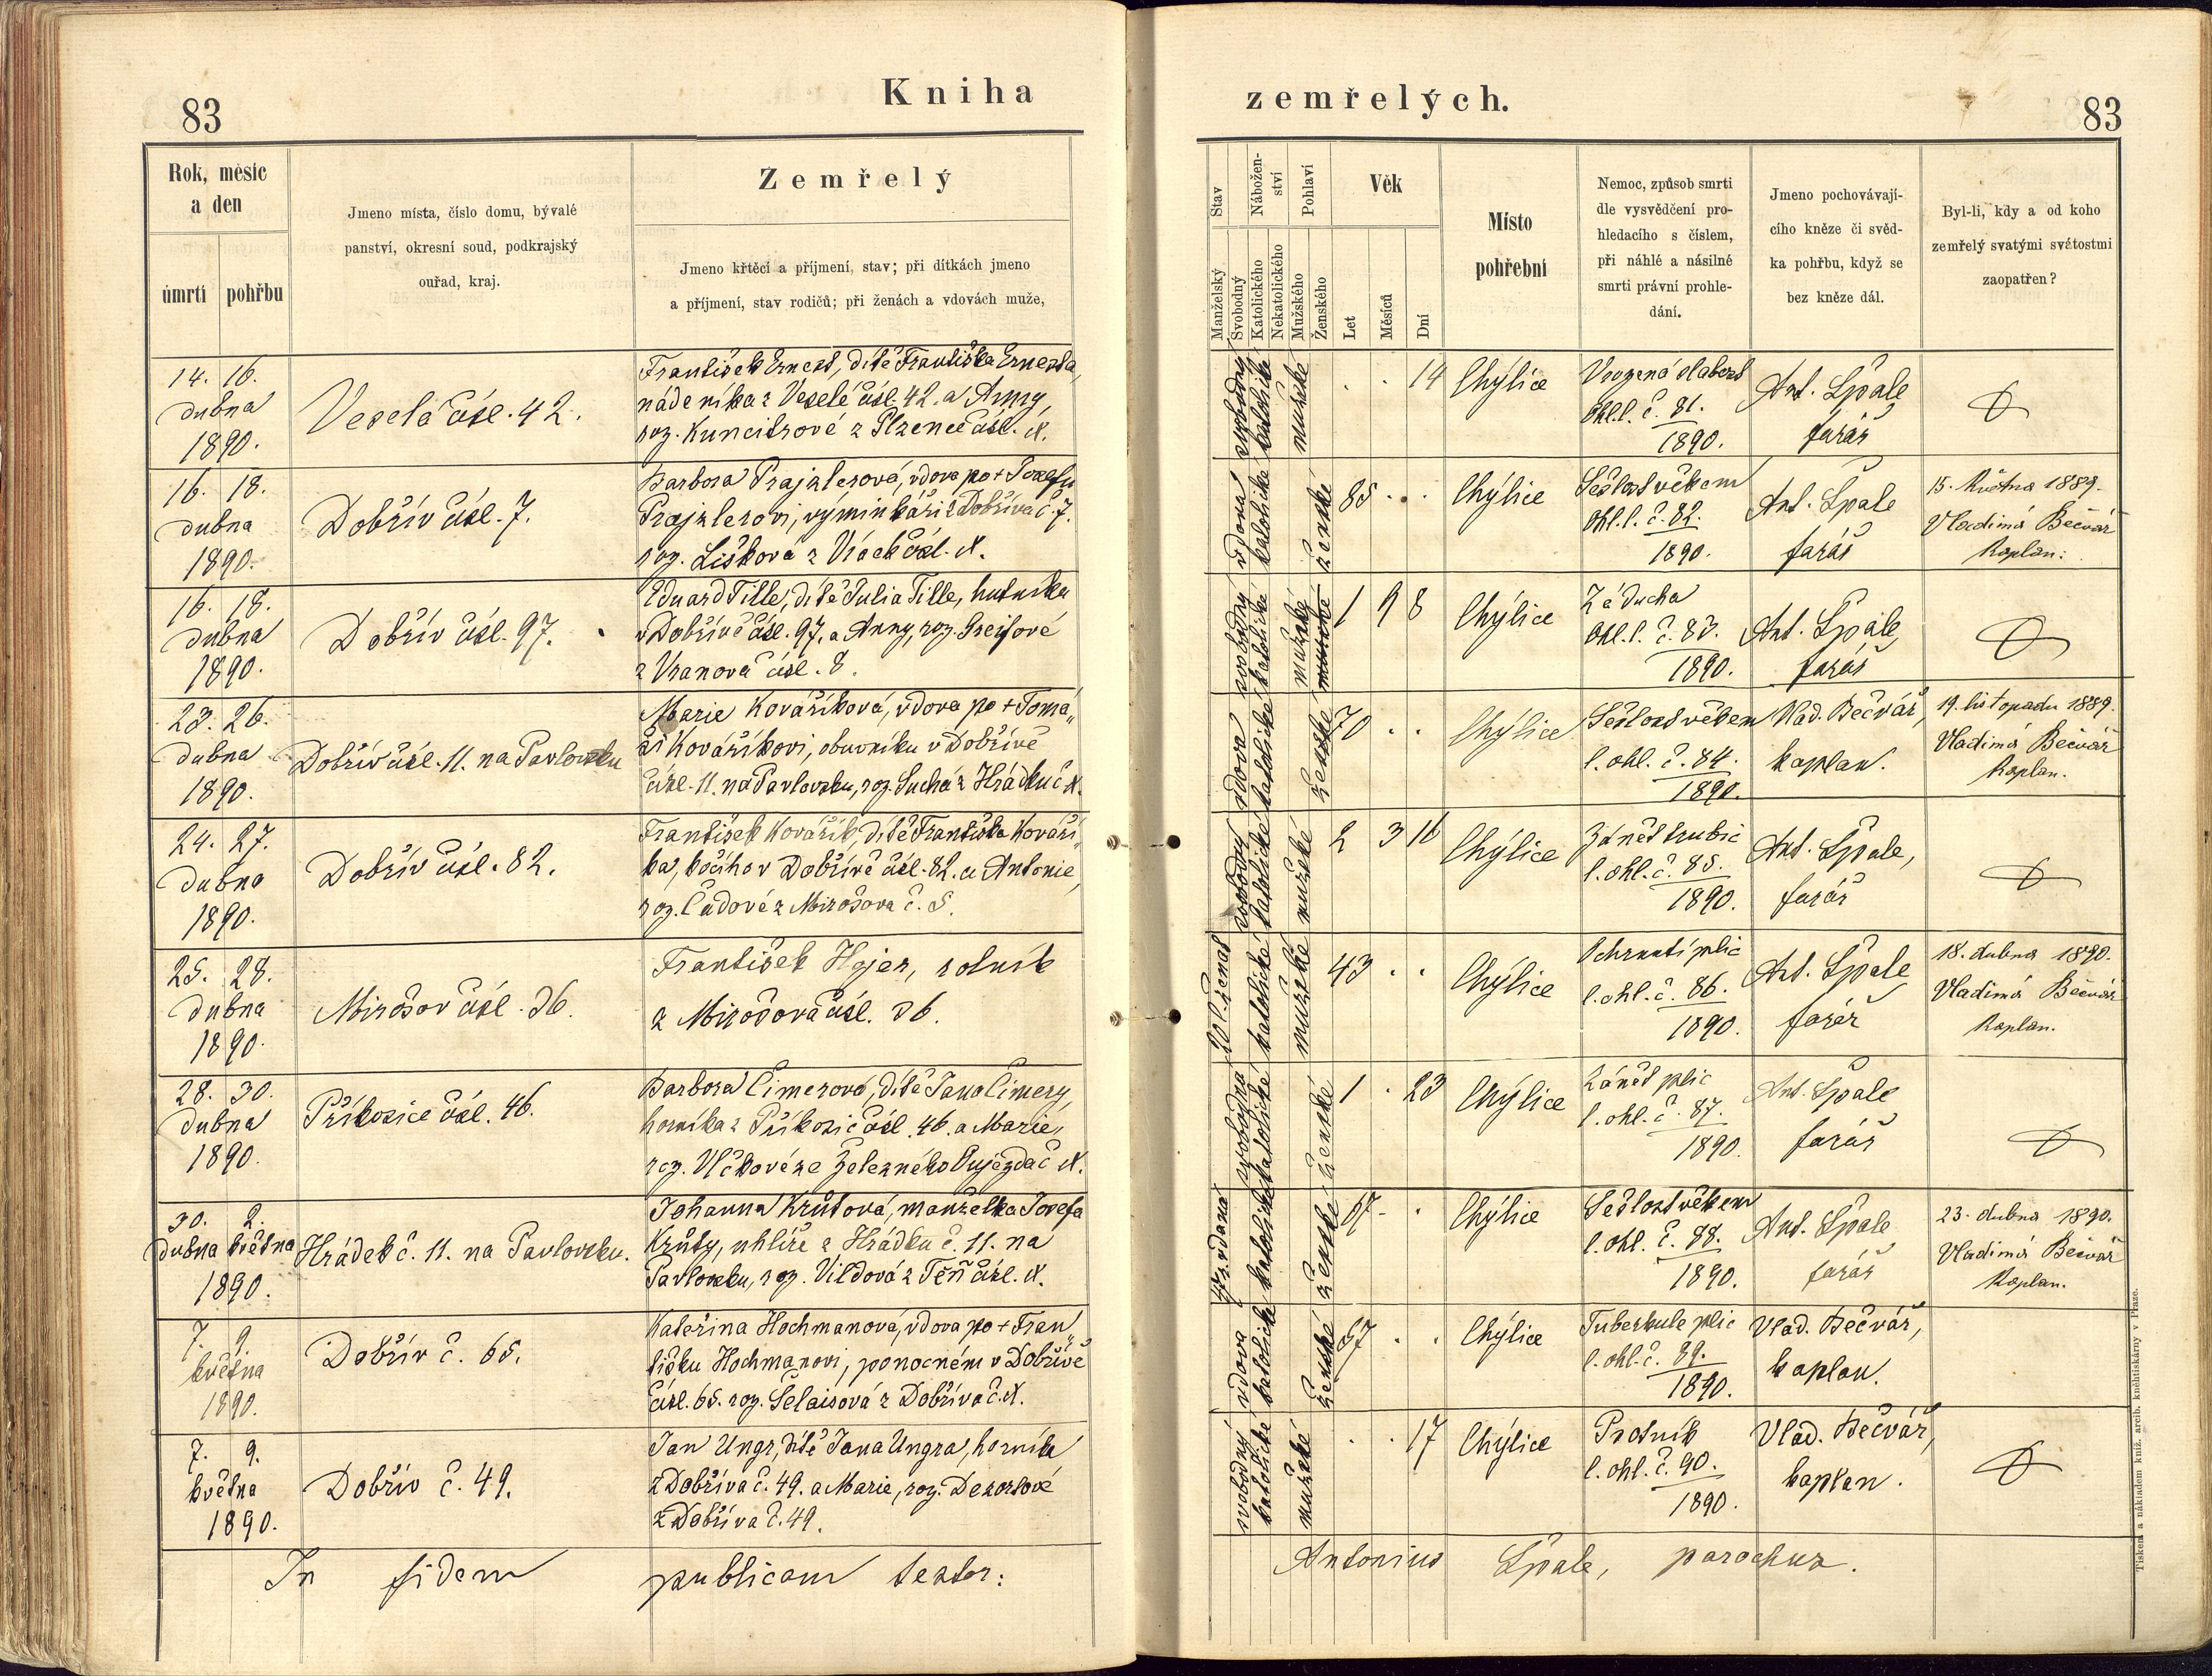 83
Kniha
zemřelých.
83
Rok, měsíc
a den
úmrtí
pohřbu
Jmeno místa, číslo domu, bývalé
panství, okresní soud, podkrajský
ouřad, kraj.
Zemřelý
Jmeno křtěcí a příjmení, stav; při dítkách jmeno
a příjmení, stav rodičů; při ženách a vdovách muže,
Stav
Manželský
Svobodný
Nábožen-
ství
Katolického
Nekatolického
Pohlaví
Mužského
Ženského
Věk
Let
Měsíců
Dní
Místo
pohřební
Nemoc, způsob smrti
dle vysvědčení pro-
hledacího s číslem,
při náhlé a násilné
smrti právní prohle-
dání.
Jmeno pochovávají-
cího kněze či svěd-
ka pohřbu, když se
bez kněze dál.
Byl-li, kdy a od koho
zemřelý svatými svátostmi
zaopatřen?
14. 16.
dubna
1890.
Veselá čísl. 42.
František Ernest, dítě Františka Ernesta,
nádeníka z Veselé čísl. 42. a Anny,
roz. z Plzence čísl. N.
svobodný
katolické
mužské
. . 14
Chýlice
Vrozená slabost
ohl. l. č. 81.
1890.
Ant. Špale
farář
16. 18.
dubna
1890.
Dobřív čísl. 7.
Barbora Prajzlerová, vdova po + Josefu
Prajzlerovi, výminkáři z Dobříva č. 7.
roz. Lišková z čísl. N.
vdova
katolické
ženské
85 . .
Chýlice
Sešlost věkem
ohl. l. č. 82.
1890.
Ant. Špale
farář
15. Května 1889.
Vladimír Bečvář
Kaplan.
16. 18.
dubna
1890.
Dobřív čísl. 97.
Eduard Tille, dítě Julia Tille, hutníka
v Dobřívě čísl. 97. a Anny, roz. Greifové
z Vranova čísl. 8.
svobodný
katolické
mužské
1 9 8
Chýlice
Záducha
ohl. l. č. 83.
1890.
Ant. Špale,
farář
23. 26.
dubna
1890.
Dobřív čísl. 11. na Pavlovsku
Marie Kovaříková, vdova po + Tomá„
ši Kovaříkovi, obuvníku v Dobřívě
čísl. 11. na Pavlovsku, roz. Suchá z Hrádku č N.
vdova
katolické
ženské
70 . .
Chýlice
Sešlost věkem
l. ohl. č. 84.
1890.
Vlad. Bečvář,
kaplan.
19. listopadu 1889.
Vladimír Bečvář
Kaplan.
24. 27.
dubna
1890.
Dobřív čísl. 82.
František Kovařík, dítě Františka Kovaří„
ka, kočího v Dobřívě čísl. 82. a Antonie,
roz. Čadové z Mirošova č. 5.
svobodný
katolické
mužské
2 3 16
Chýlice
Zánět trubic
l. ohl. č. 85.
1890.
Ant. Špale,
farář
25. 28.
dubna
1890.
Mirošov čísl. 36.
František Hajer, rolník
z Mirošova čísl. 36.
20 l. ženat
katolické
mužské
43 . .
Chýlice
Ochrnutí plic
l. ohl. č. 86.
1890.
Ant. Špale
farář
18. dubna 1890.
Vladimír Bečvář
Kaplan.
28. 30.
dubna
1890.
Příkosice čísl. 46.
Barbora Cimerová, dítě Jana Cimery,
horníka z Příkosic čísl. 46. a Marie,
roz. Vlčkové ze Železného Oujezda č N.
svobodná
katolické
ženské
1 . 23
Chýlice
Zánět plic
l. ohl. č. 87.
1890.
Ant. Špale
farář
30. 2.
dubna května
1890.
Hrádek č. 11. na Pavlovsku.
Johanna Krůtová, manželka Josefa
Krůty, uhlíře z Hrádku č. 11. na
Pavlovsku, roz. Vildová z Těň čísl. N.
vdaná
katolické
ženské
67 . .
Chýlice
Sešlost věkem
l. ohl. č. 88.
1890.
Ant. Špale
farář
23. dubna 1890.
Vladimír Bečvář
Kaplan.
7. 9.
května
1890.
Dobřív č. 65.
Kateřina Hochmanová, vdova po + Fran„
tišku Hochmanovi, ponocném v Dobřívě
čísl. 65. roz. Šelaisová z Dobříva č. N.
vdova
katolické
ženské
67 . .
Chýlice
Tuberkule plic
l. ohl. č. 89.
1890.
Vlad. Bečvář,
kaplan.
7. 9.
května
1890.
Dobřív č. 49.
Jan Ungr, dítě Jana Ungra, horníka
z Dobříva č. 49. a Marie, roz. Dezortové
z Dobříva č. 49.
svobodný
katolické
mužské
. . 17
Chýlice
Psotník
l. ohl. č. 90.
1890.
Vlad. Bečvář,
kaplan.
In fidem publicam testor:
Antonius Špale, parochus.
Tiskem a nákladem kníž. arcib. kněhtiskárny v Praze.